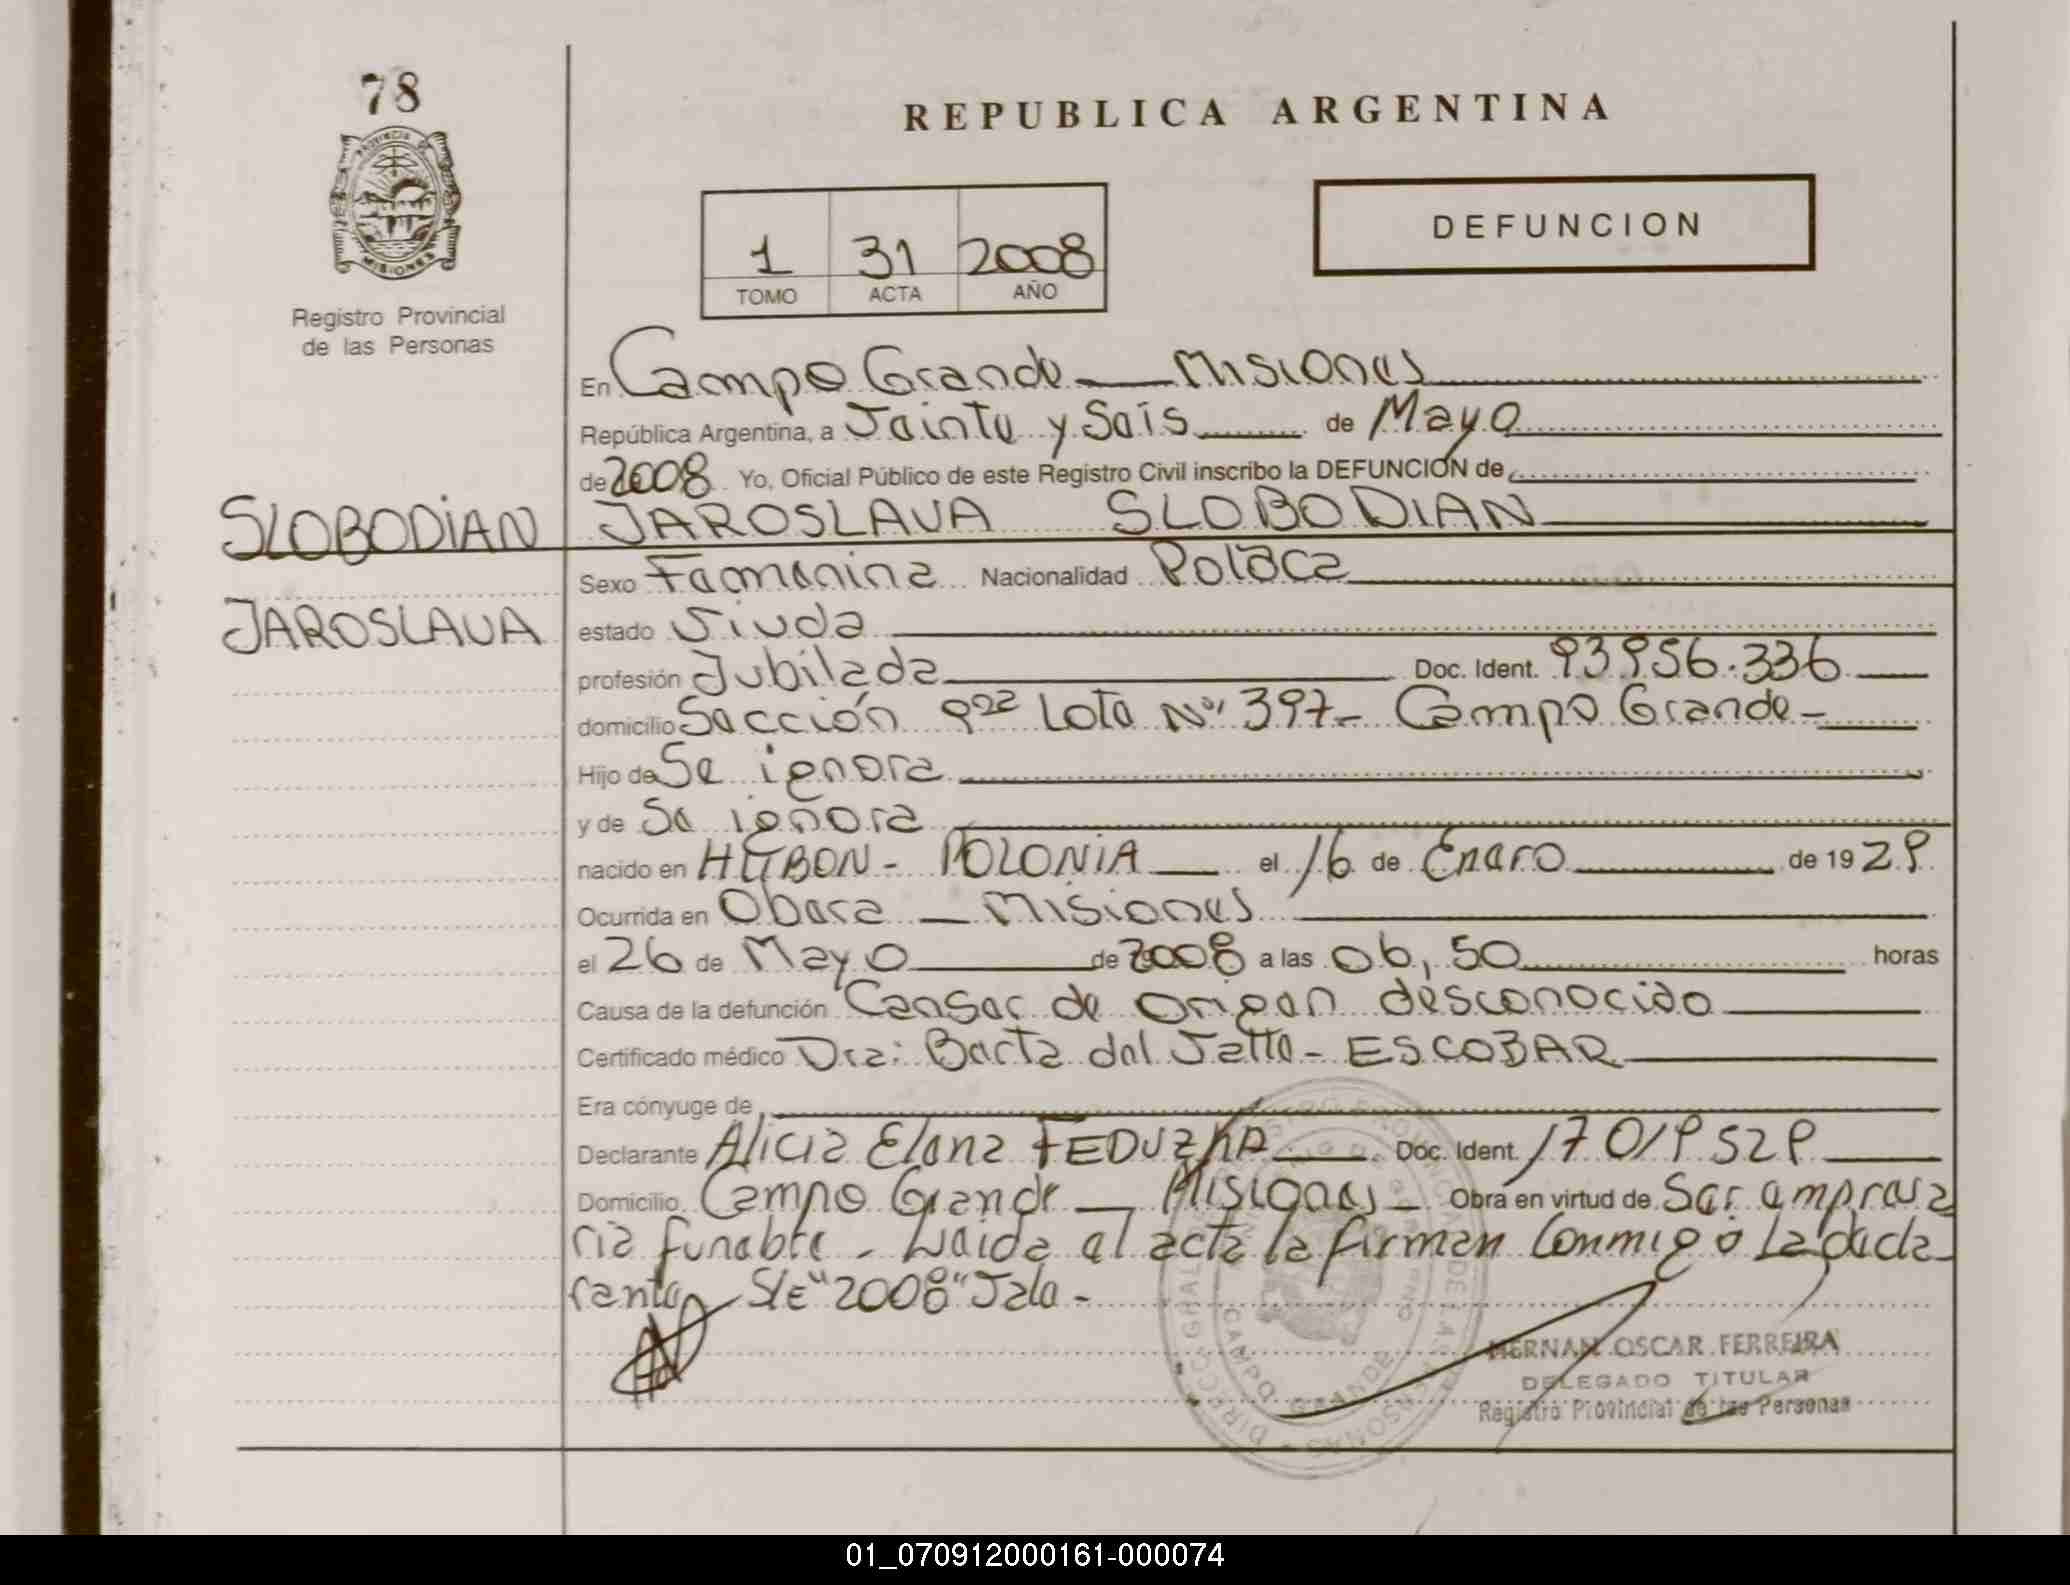 78
PROVINCIA DE
MISIONES
Registro Provincial
de las Personas
REPUBLICA ARGENTINA
1 31 2008
TOMO ACTA AÑO
DEFUNCION
En Campo Grande - Misiones
República Argentina, a Veinte y Seis de Mayo
de 2008 Yo, Oficial Público de este Registro Civil inscribo la DEFUNCION de
SLOBODIAN JAROSLAVA SLOBODIAN
Sexo Femenina Nacionalidad Polaca
JAROSLAVA estado Viuda
profesión Jubilada Doc. Ident. 93.956.336
domicilio Sección 9na Lote Nº 397 - Campo Grande -
Hijo de Se ignora
y de Se ignora
nacido en POLONIA el 16 de Enero de 1929
Ocurrida en Obera - Misiones
el 26 de Mayo de 2008 a las 06,50 horas
Causa de la defunción Cancer de origen desconocido
Certificado médico Dra: Berta del Valle - ESCOBAR
Era cónyuge de
Declarante Alicia Elena Doc. Ident. 17019529
Domicilio Campo Grande - Misiones - Obra en virtud de Ser empresa
ria funebre - Leida el acta la firman Conmigo La decla
rante S/E "2008" Vale -
HERNAN OSCAR FERREIRA
DELEGADO TITULAR
Registro Provincial de las Personas
CAMPO GRANDE
01_070912000161-000074